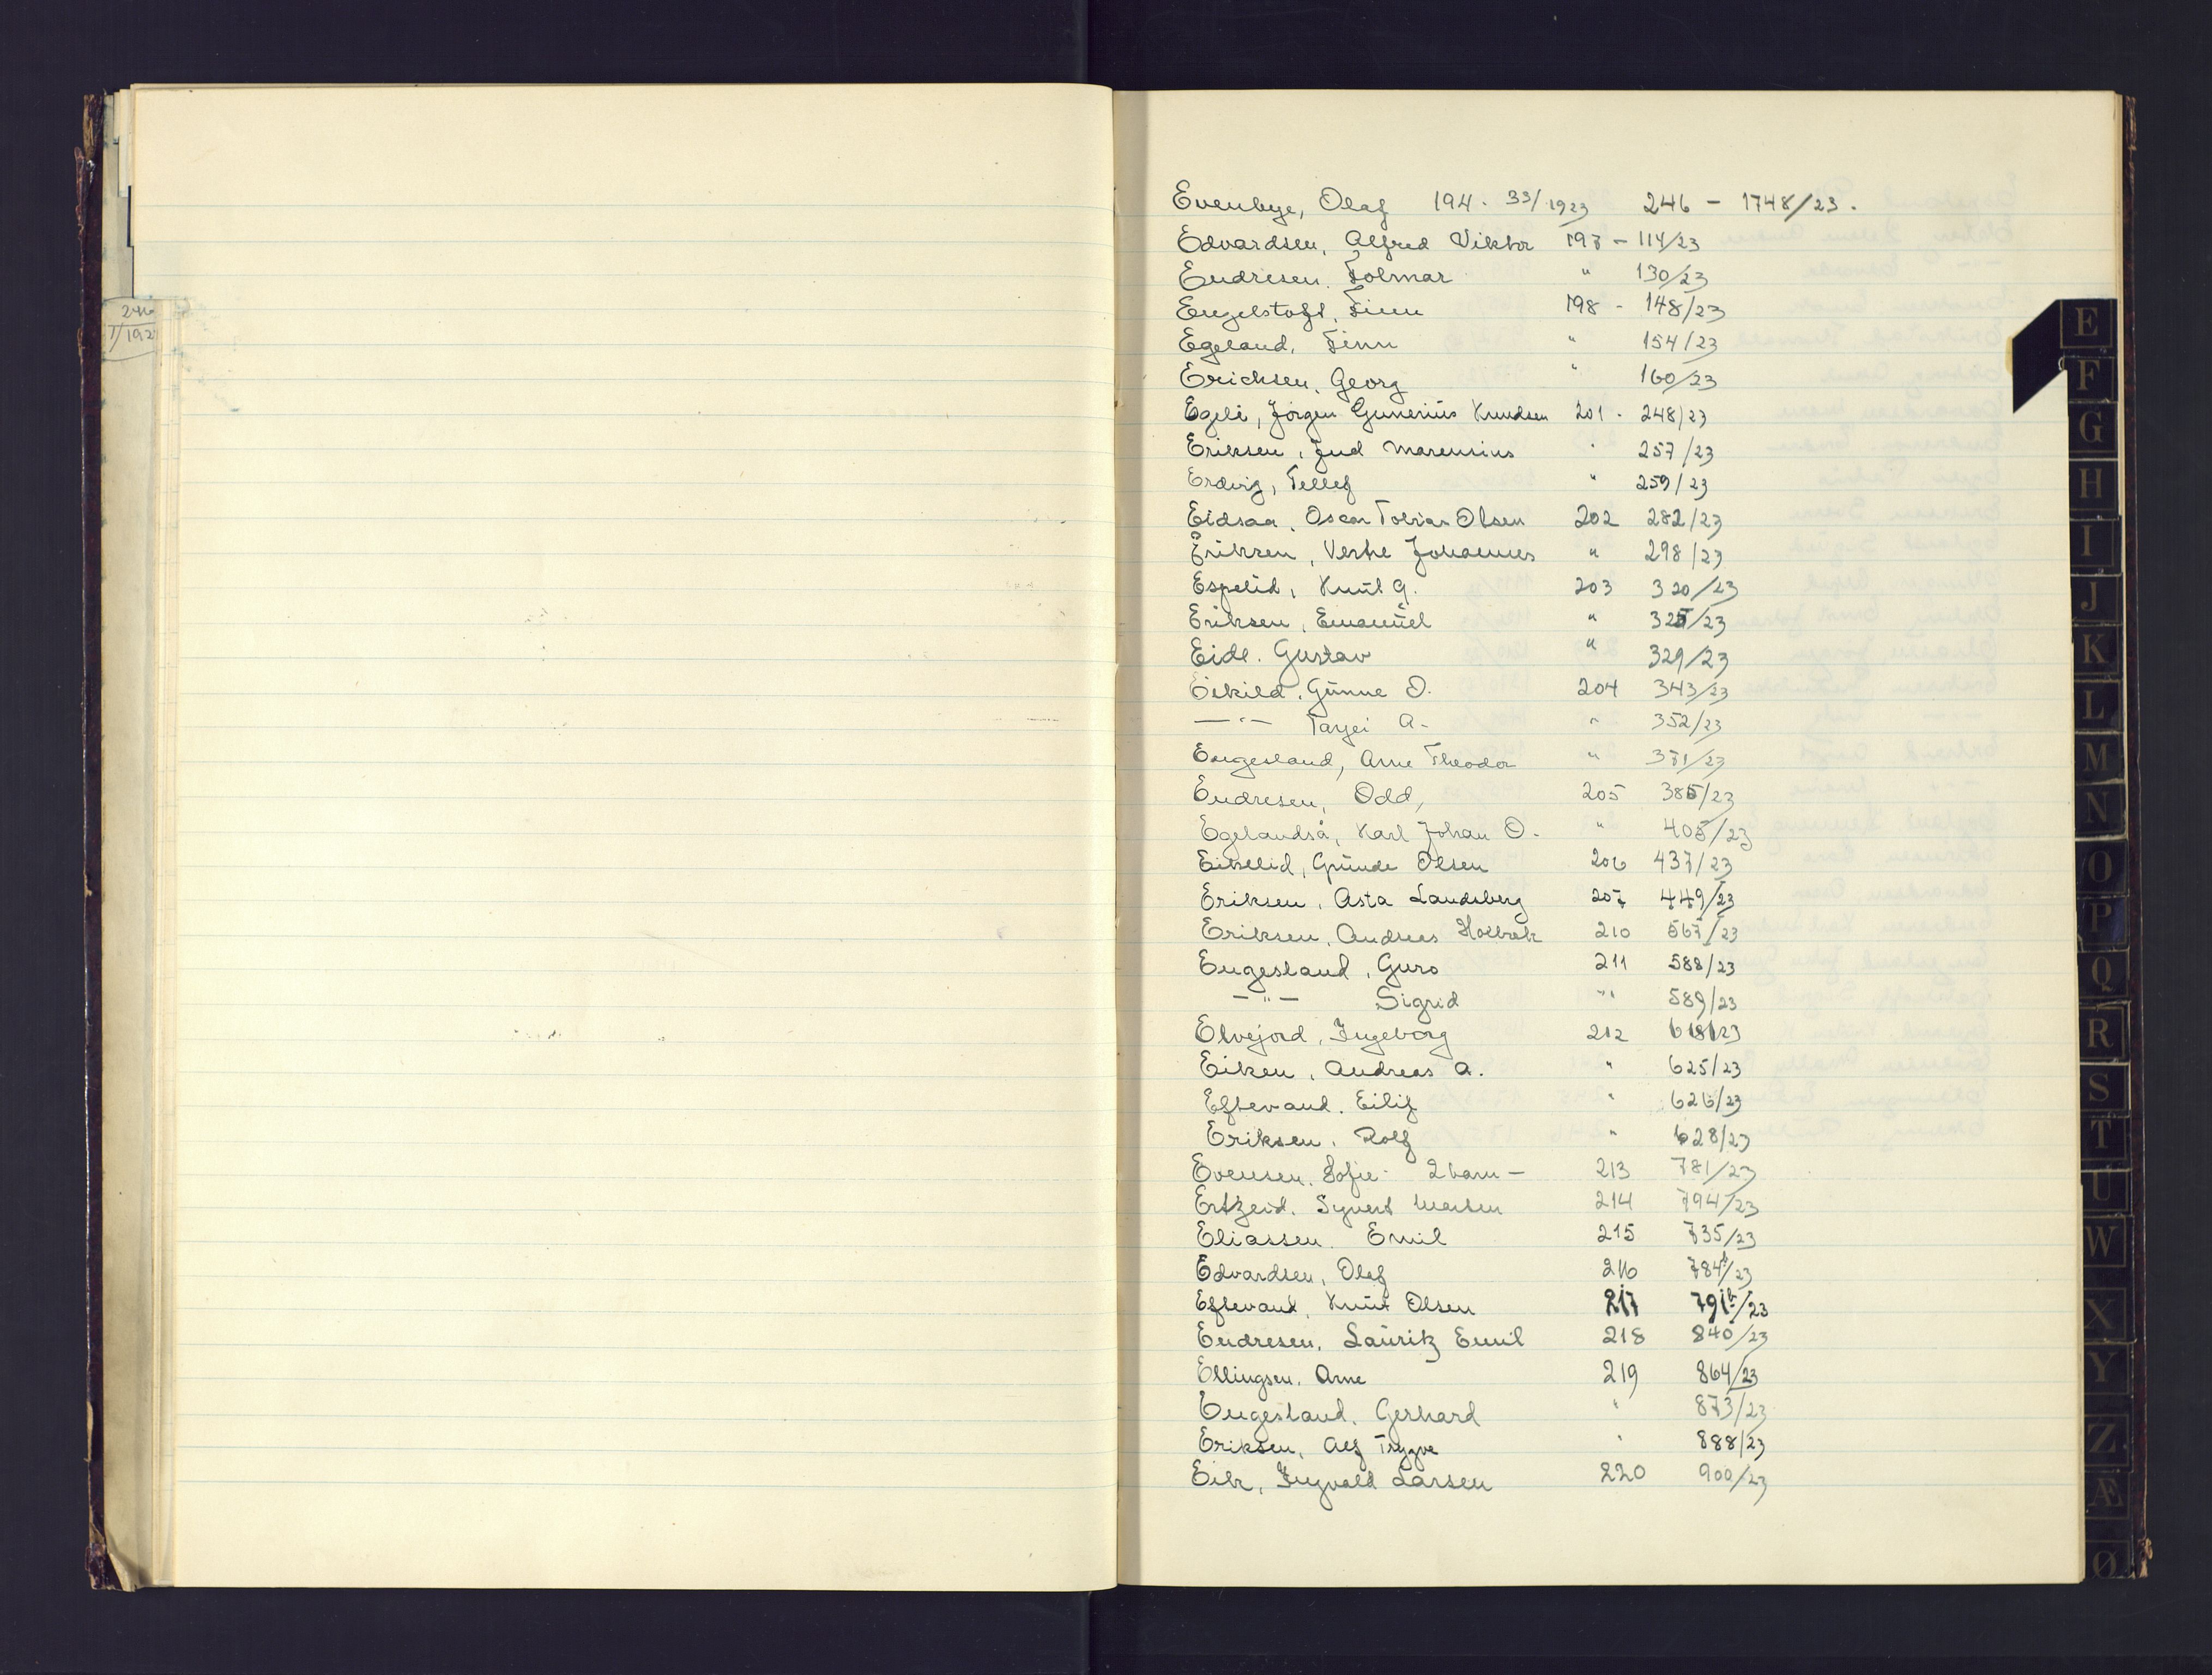 246
1/192
Evenbye, Olaf 194 - 33/1923 246 - 1748/23.
Edvardsen, Alfred Viktor 197 - 114/23
Endresen. Folmar " 130/23
Engelstoft, Finn 198 - 148/23
Egeland, Finn " 154/23
Erichsen, Georg " 160/23
Egeli, Jørgen Gunerius Knudsen 201 - 248/23
Eriksen, Jud Marensius " 257/23
Erdvig, Tellef " 259/23
Eidsaa, Oscar Tobias Olsen 202 282/23
Eriksen, Johannes " 298/23
Espelid, Knut G. 203 320/23
Eriksen, Emanuel " 325/23
Eide. Gustav " 329/23
Eikild, Gunne O. 204 343/23
— " — Tarjei A. " 352/23
Engesland, Arne Theodor " 371/23
Endresen, Odd, 205 385/23
Egelandså, Karl Johan O. " 405/23
Eikelid, Gunde Olsen 206 437/23
Eriksen, Asta Landsberg 207 449/23
Eriksen, Andreas Holbæk 210 567/23
Engesland, Guro 211 588/23
— " — Sigrid " 589/23
Elvejord, Ingeborg 212 618/23
Eiken, Andreas A. " 625/23
Eftevand. Eilif " 626/23
Eriksen. Rolf " 628/23
Evensen. Sofie - 2 barn - 213 781/23
Ertzeid. Syvert 214 794/23
Eliassen. Emil 215 735/23
Edvardsen, Olaf 216 784b/23
Eftevand, Knut Olsen 217 791b/23
Endresen, Lauritz Emil 218 840/23
Ellingsen. Arne 219 864/23
Engesland. Gerhard " 873/23
Eriksen, Alf Trygve " 888/23
Eik, Ingvald Larsen 220 900/23
E
F
G
H
I
J
K
L
M
N
O
P
Q
R
S
T
U
W
X
Y
Z
Æ
Ø